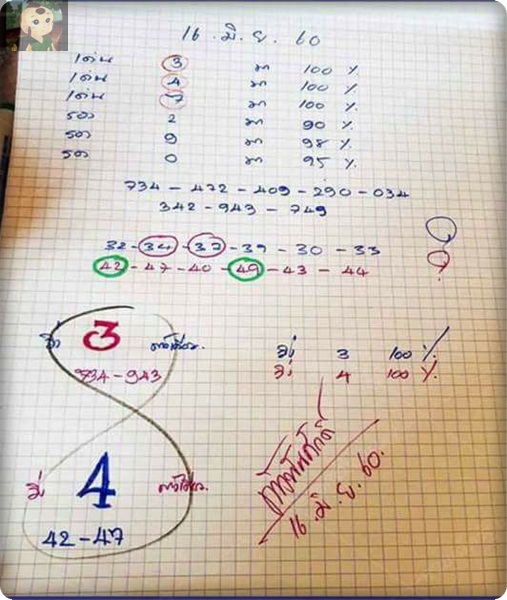 16 มิ.ย. 60
เด่น 3 มา 100 %
เด่น 4 มา 100 %
เด่น 7 มา 100 %
รอง 2 มา 90 %
รอง 9 มา 98 %
รอง 0 มา 95 %
734 - 472 - 409 - 290 - 034
342 - 943 - 749
32 - 34 - 37 - 39 - 30 - 33
42 - 47 - 40 - 49 - 43 - 44
3
734 - 943
3 100 %
4 100 %
มี 4
42 - 47
16 มิ.ย. 60.